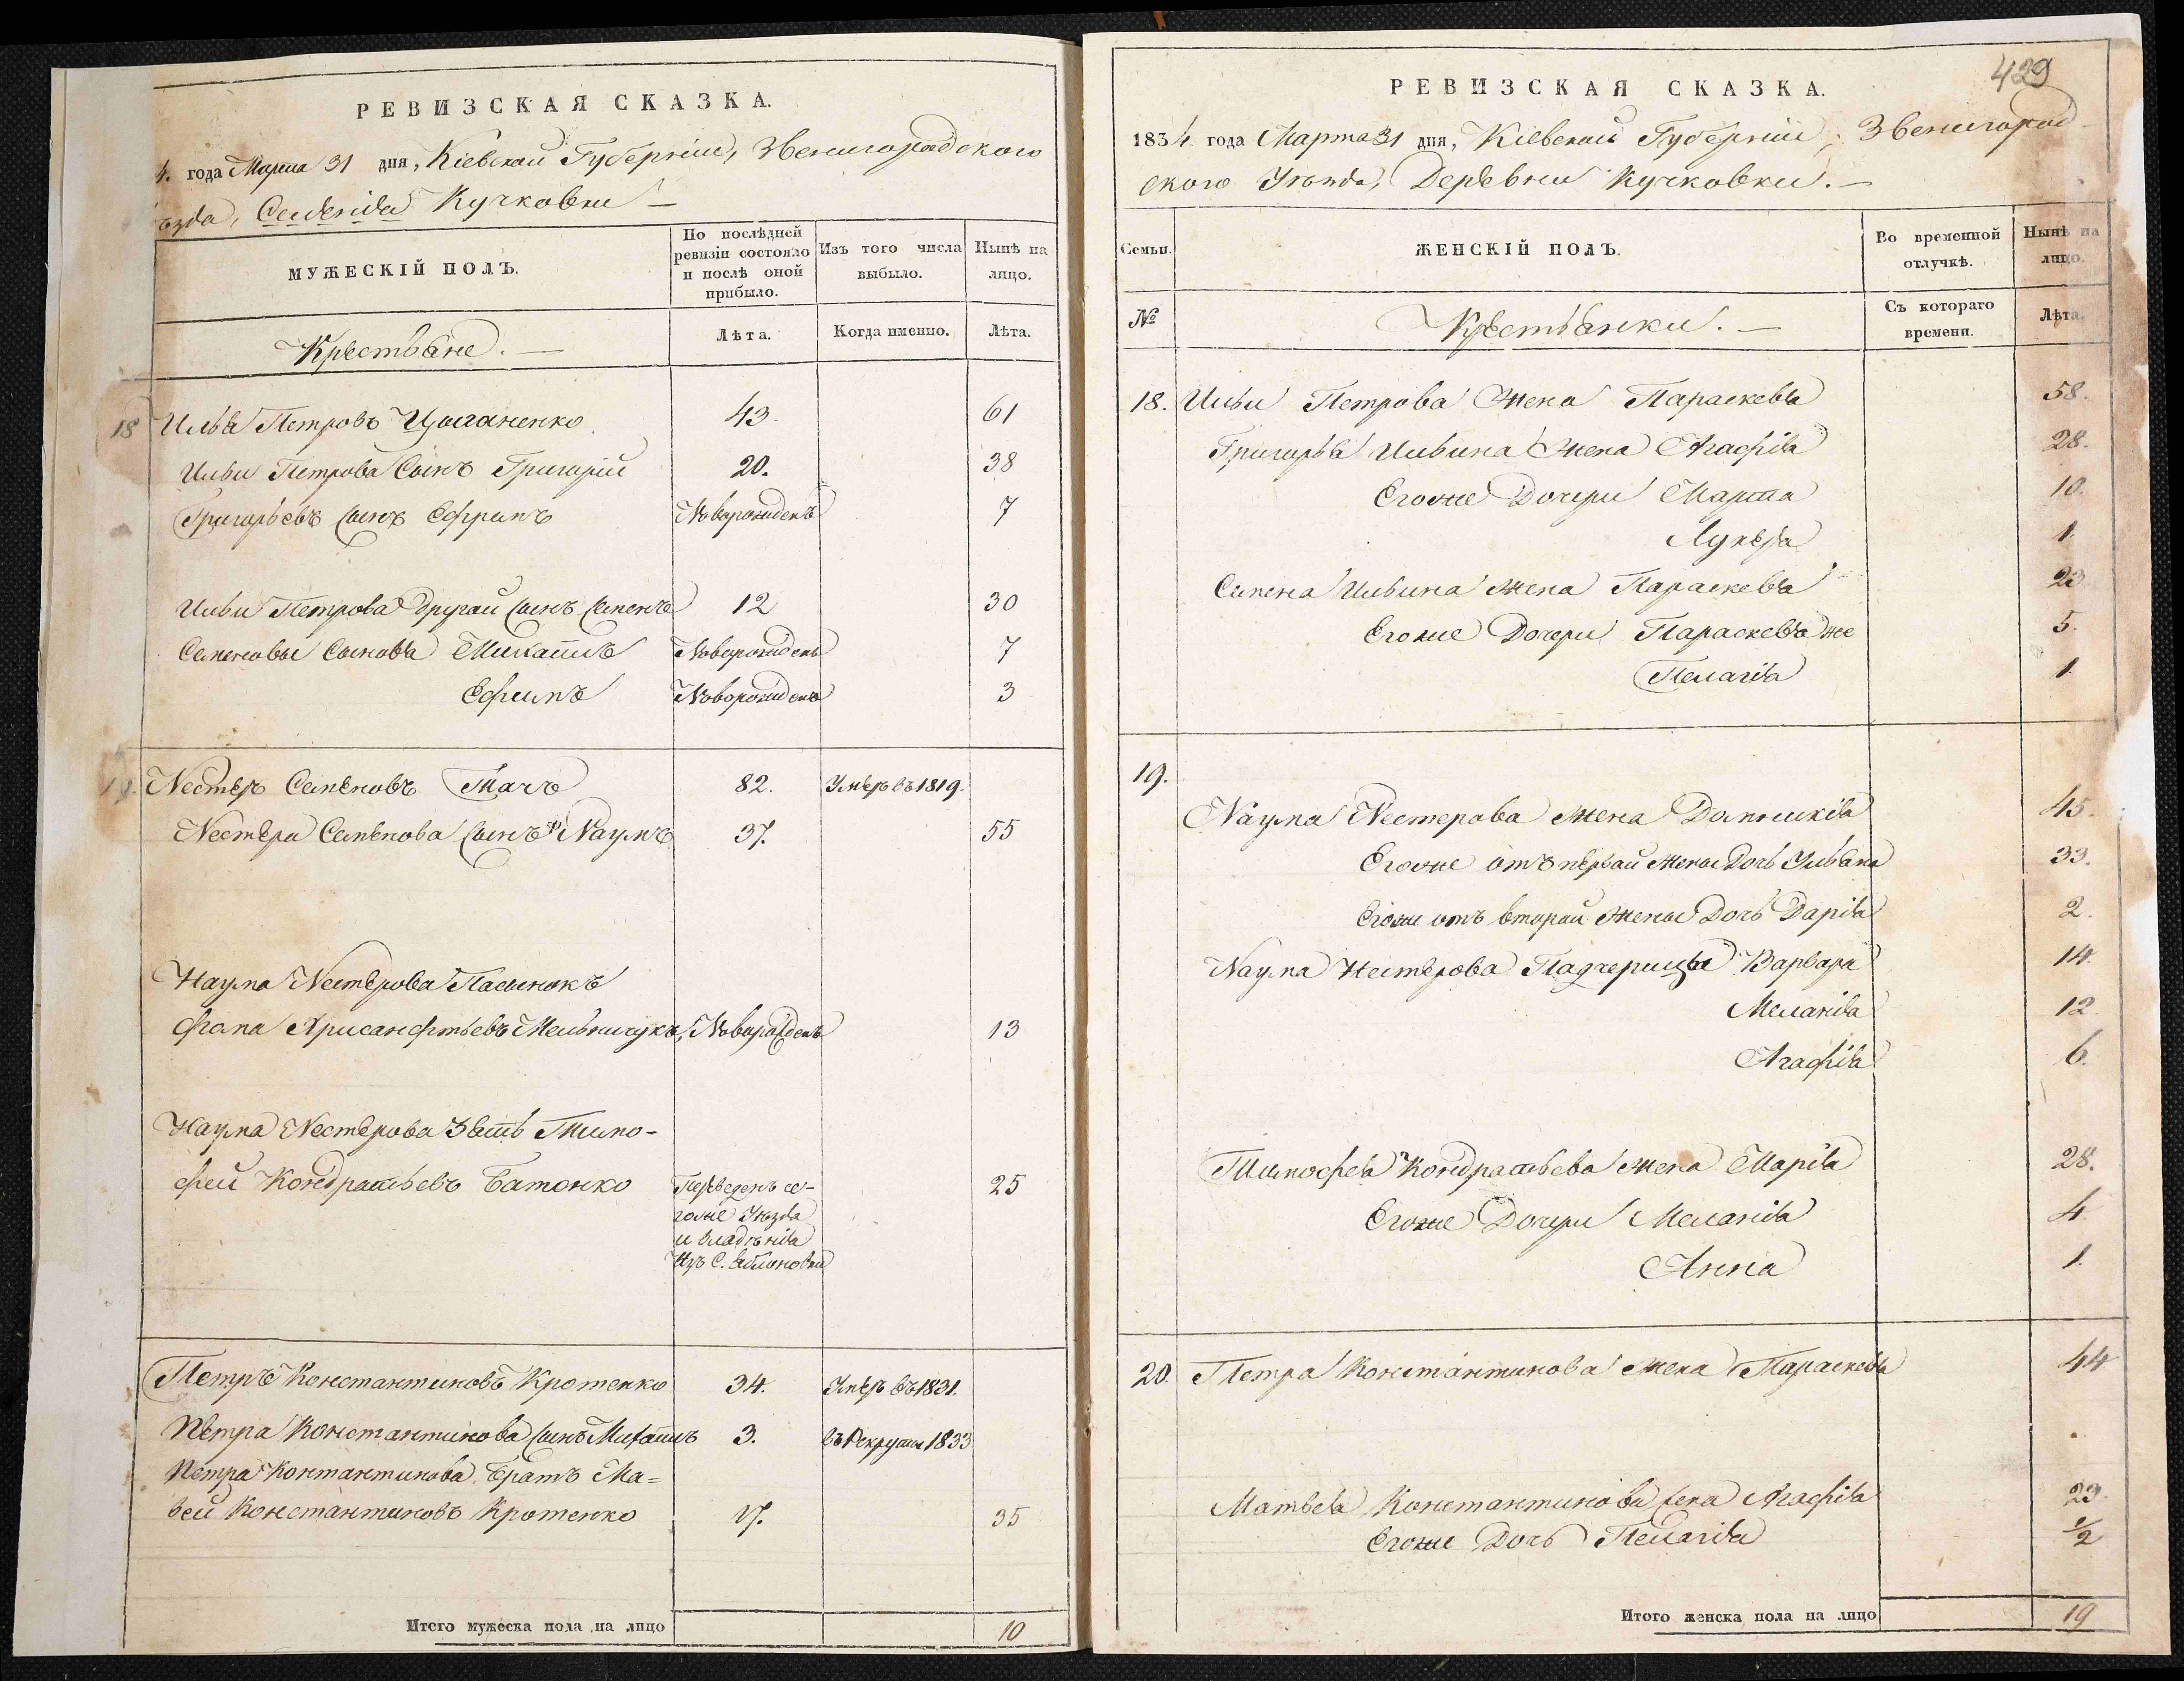 РЕВИЗСКАЯ СКАЗКА.
4. года Марта 31 дня, Кіевской Губерніи, Звенигородского
ѣзда, Кучковки —
МУЖЕСКІЙ ПОЛЪ.
По послѣдней ревизіи состояло и послѣ оной прибыло.
Изъ того числа выбыло.
Нынѣ на лицо.
Крестьяне. —
Лѣта.
Когда именно.
Лѣта.
18 Илья Петровъ Цыганенко 43. 61
Ильи Петрова Сынъ Григорій 20. 38
Григорьевъ сынъ Ефримъ Новорожденъ 7
Ильи Петрова другой сынъ Семенъ 12 30
Семеновы Сыновья Михаилъ Новорожденъ 7
Ефимъ Новорожденъ 3
19. Нестеръ Семеновъ Ткачъ 82. Умеръ въ 1819.
Нестера Семенова сынъ Наумъ 37. 55
Наума Нестерова Пасынокъ
Фома Хрисанфтьевъ Мельничукъ, Новорожденъ 13
Наума Нестерова Зять Тимо-
фей Кондратьевъ Батонко Переведенъ се- 25
гоже Уѣзда
и владѣнія
Изъ С. Яблоновки
Петръ Константиновъ Кротенко 34. Умеръ въ 1831.
Петра Константинова сынъ Михаилъ 3. въ Рекруты 1833
Петра Контантинова Братъ Ма=
вей Константиновъ Кротенко 17. 35
Итого мужеска пола на лицо 10
429
РЕВИЗСКАЯ СКАЗКА.
1834 года Марта 31 дня, Кіевской Губерніи, Звенигород
ского Уѣзда, Деревни Кучковки. —
Семьи.
ЖЕНСКІЙ ПОЛЪ.
Во временной отлучкѣ.
Нынѣ на лицо.
№
Крестьянки. —
Съ котораго времени.
Лѣта.
18. Ильи Петрова Жена Параскевія 58.
Григорья Ильина Жена Агафія 28.
Егоже Дочери Марта 10.
Лукерія 1.
Семена Ильина жена Параскевія 23
Егоже Дочери Параскевія же 5.
Пелагія 1.
19.
Наума Нестерова жена Домникія 45.
Егоже отъ первой жены Дочь Ульяна 33.
Егоже отъ второй жены Дочь Дарія 2.
Наума Нестерова Падчерицы Варвара 14.
Меланія 12
Агафія 6.
Тимофея Кондратьева жена Марія 28.
Егоже Дочери Меланія 4.
Анна 1.
20. Петра Константинова жена Параскевія 44
Матвея Константинова жена Агафія 23.
Егоже Дочь Пелагія 1/2
Итого женска пола на лицо 19